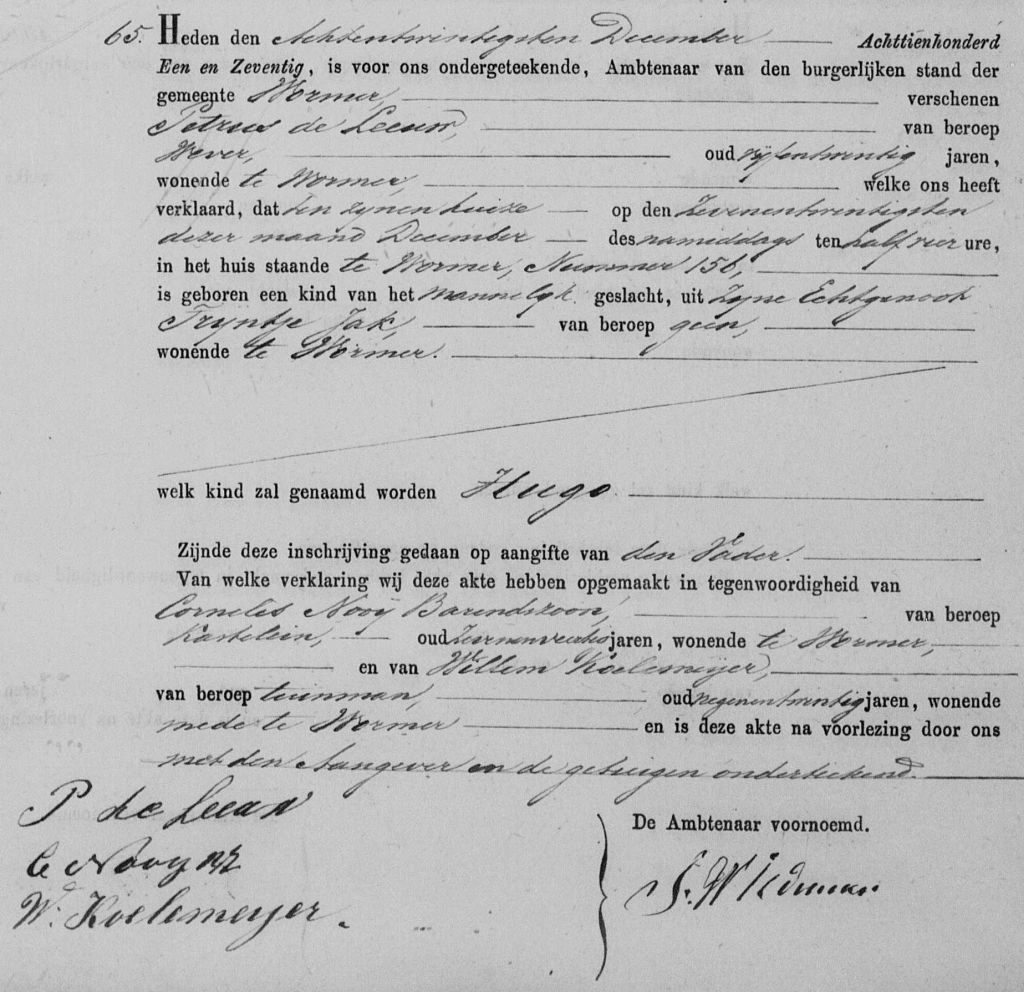 65. Heden den Achtentwintigsten December Achttienhonderd
Een en Zeventig, is voor ons ondergeteekende, Ambtenaar van den burgerlijken stand der
gemeente Wormer, verschenen
Petrus de Leeuw, van beroep
Wever, oud vijfentwintig jaren,
wonende te Wormer, welke ons heeft
verklaard, dat ten zynen huize op den Zevenentwintigsten
dezer maand December des nameddags ten half vier ure,
in het huis staande te Wormer, Nummer 156,
is geboren een kind van het mannelyk geslacht, uit Zyne Echtgenoot
Tryntje Jak, van beroep geen,
wonende te Wormer.
welk kind zal genaamd worden Hugo.
Zijnde deze inschrijving gedaan op aangifte van den Vader.
Van welke verklaring wij deze akte hebben opgemaakt in tegenwoordigheid van
Cornelis Nooij Barendszoon, van beroep
Kastelein, oud jaren, wonende te Wormer,
en van Willem Koelemeyer,
van beroep tuinman, oud negenentwintig jaren, wonende
mede te Wormer en is deze akte na voorlezing door ons
met den Aangever en de getuigen onderteekend.
P de Leeuw
De Ambtenaar voornoemd.
C Nooy Bz
W. Koelemeyer.